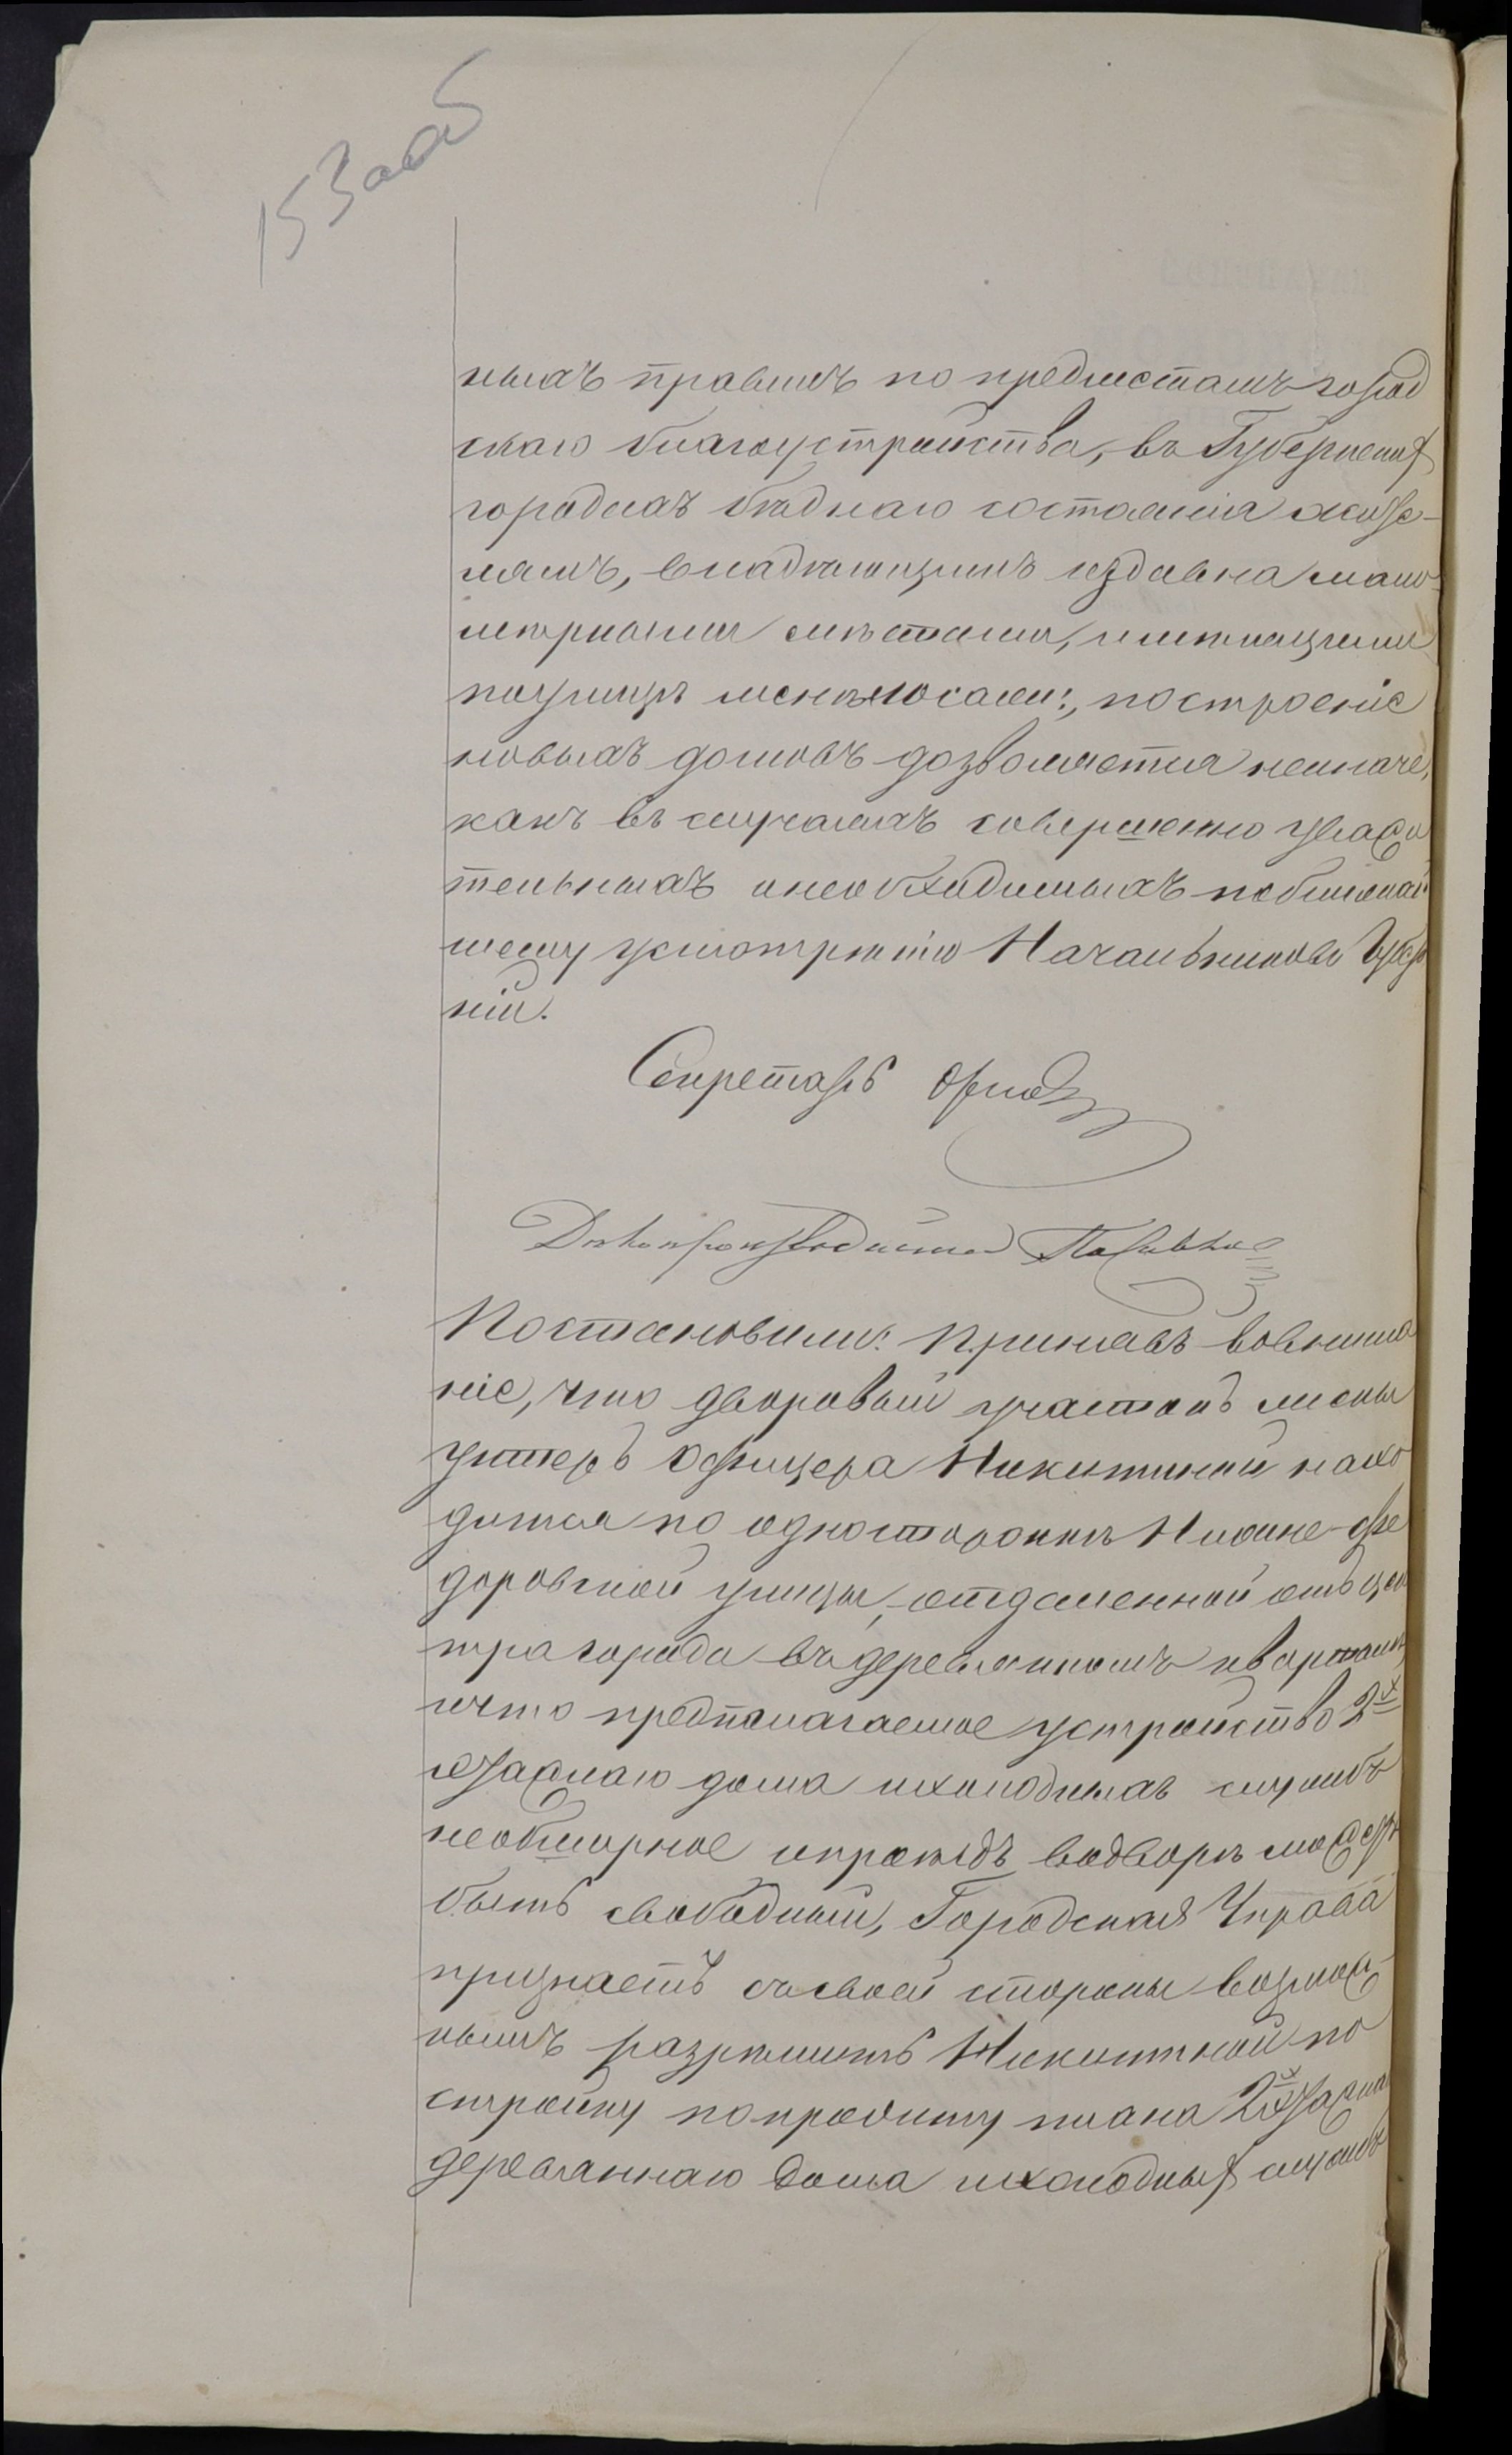 153 аоб
ныхъ правилъ по предметамъ город
скаго благоустройства, въ Губернских
городахъ бѣднаго состоянія жите-
лямъ, владѣющимъ издавна мало
мѣрными мѣстами, имѣющими
по улицѣ менѣе 10 саж:, построеніе
новыхъ домовъ дозволяется не иначе,
какъ въ случаяхъ совершенно уважи
тельныхъ и необходимыхъ по ближай
шему усмотрѣнію Начальниковъ Губер
ній.
Секретарь
Дѣлопроизводитель
Постановили: Принявъ во внима
ніе, что дворовый участокъ жены
унтеръ Офицера Никитиной нахо
дится по одной сторонѣ Нижне-Фе
доровской улицы, отдаленной отъ цен
тра города въ деревянномъ кварталѣ,
и что предполагаемое устройство 2х
этажнаго дома и холодныхъ службъ
необширное и проѣздъ во дворъ можетъ
быть свободный, Городская Управа
признаетъ съ своей стороны возмож-
нымъ разрѣшить Никитиной по
стройку по проэкту плана 2х этажна
деревяннаго дома и холодных службъ